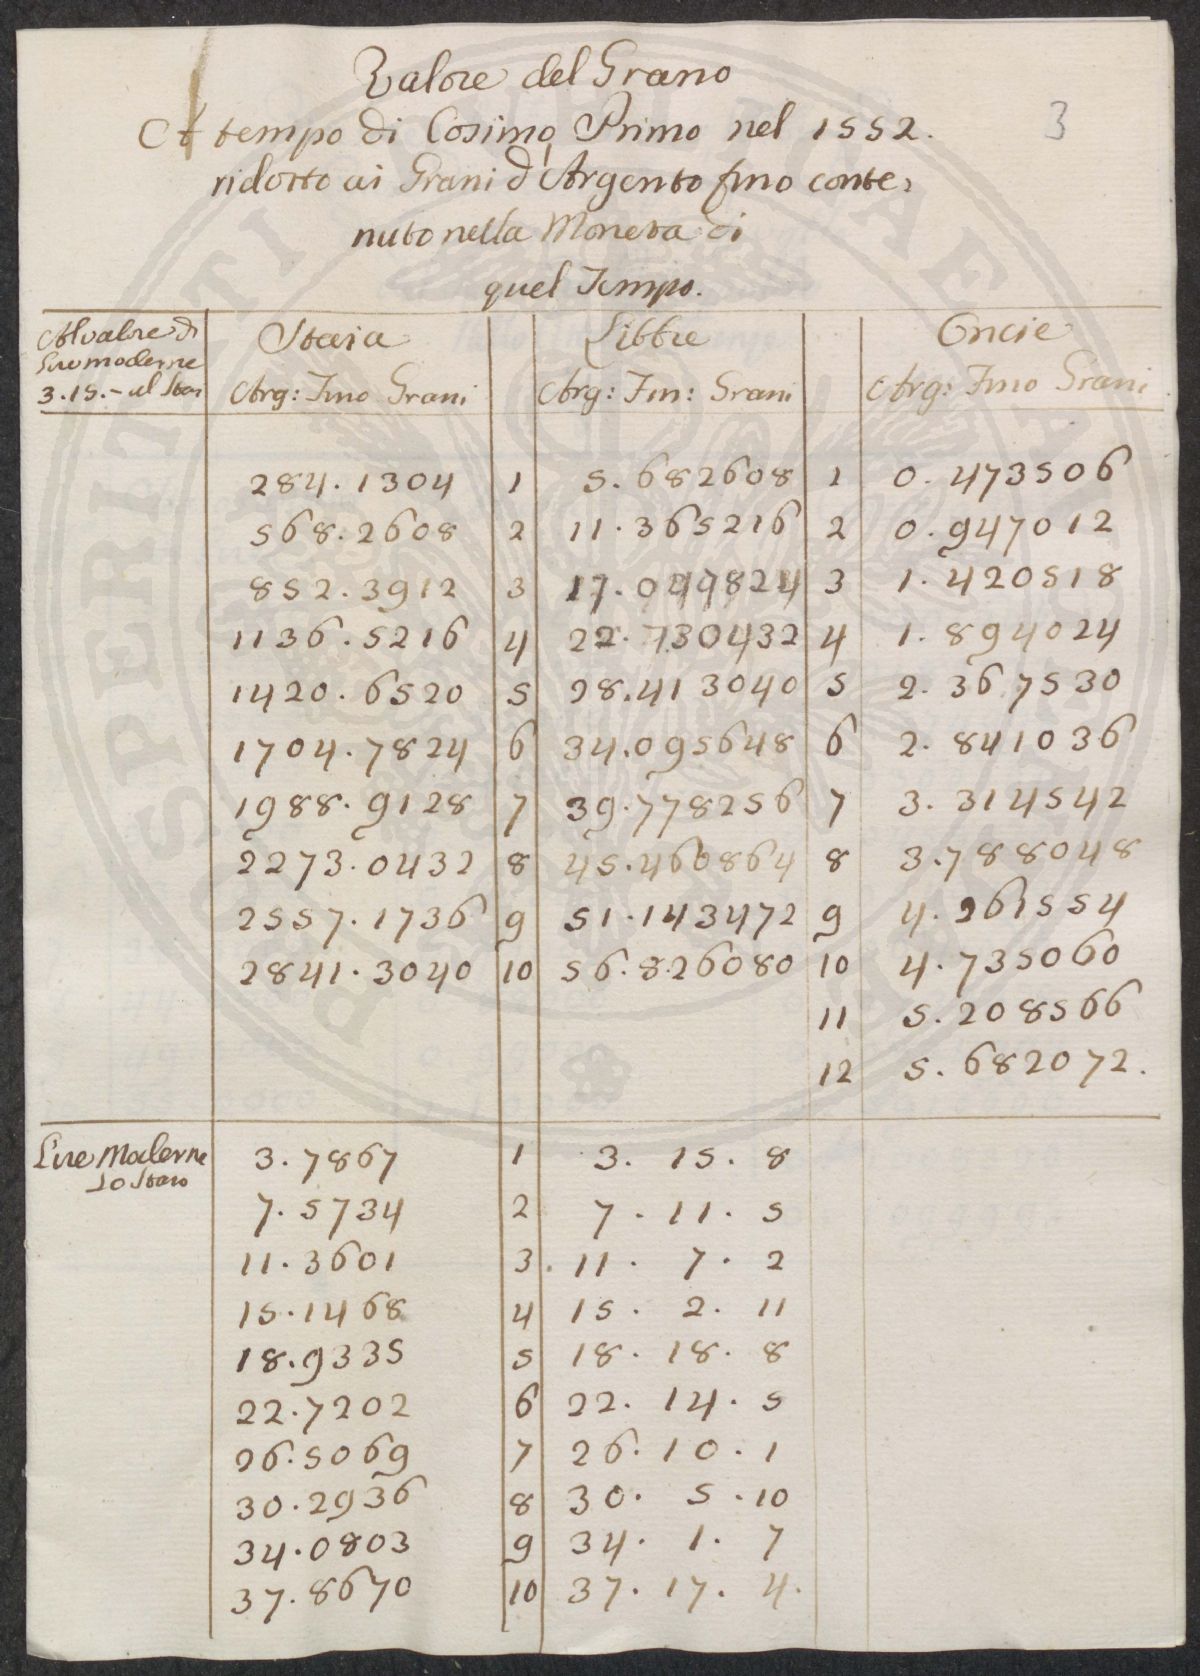 Valore del Grano
Al tempo di Cosimo Primo nel 1552.
3
ridotto ai Grani d'Argento fino conte,
nuto nella Moneta di
quel Tempo.
Al valore di Staia Libbre Oncie
Lire moderne
3.15.- al Star Arg: Fino Grani Arg: Fin: Grani Arg: Fino Grani
284.1304 1 5.682608 1 0.473506
568.2608 2 11.365216 2 0.947012
852.3912 3 17.047824 3 1.420518
1136.5216 4 22.730432 4 1.894024
1420.6520 5 28.413040 5 2.367530
1704.7824 6 34.095648 6 2.841036
1988.9128 7 39.778256 7 3.314542
2273.0432 8 45.460864 8 3.788048
2557.1736 9 51.143472 9 4.261554
2841.3040 10 56.826080 10 4.735060
11 5.208566
12 5.682072.
Lire Moderne 3.7867 1 3. 15. 8
lo Staro
7.5734 2 7. 11. 5
11.3601 3. 11. 7. 2
15.1468 4 15. 2. 11
18.9335 5 18. 18. 8
22.7202 6 22. 14. 5
26.5069 7 26. 10. 1
30.2936 8 30. 5. 10
34.0803 9 34. 1. 7
37.8670 10 37. 17. 4.